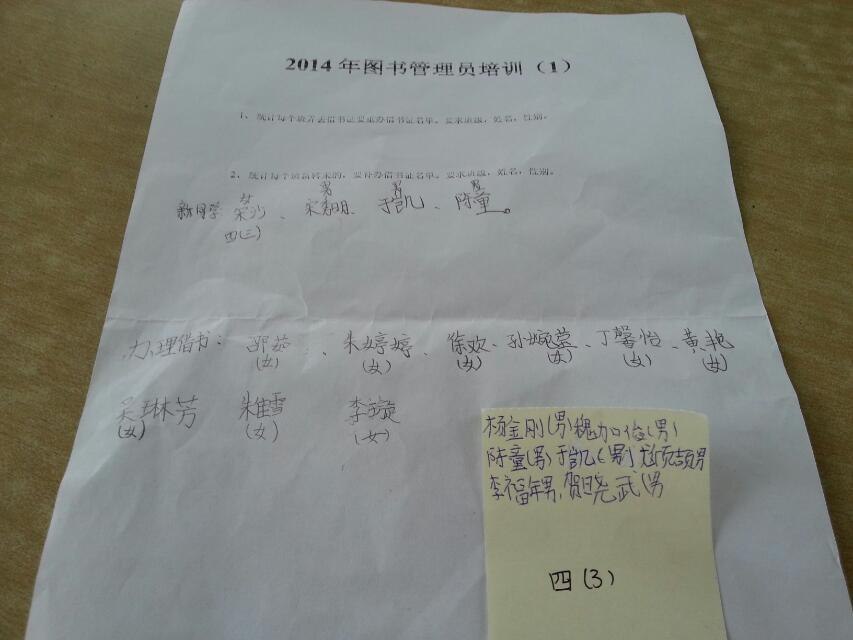 2014年图书管理员培训（1）
1、统计每个班弄丢借书证要重办借书证名单。要求班级，姓名，性别。
2、统计每个班新转来的，要补办借书证名单。要求班级，姓名，性别。
女 男 男 男
新同学 宋 、宋 、于凯、陈童。
四(三)
办理借书： 、朱婷婷、徐欢、孙婉莹、丁馨怡、黄艳
(女) (女) (女) (女) (女) (女)
吴琳芳 朱雪 李
(女) (女) (女)
杨金刚(男)魏 俊(男)
陈童(男)于凯(男) 男
李福年男,贺晓武(男
四(3)